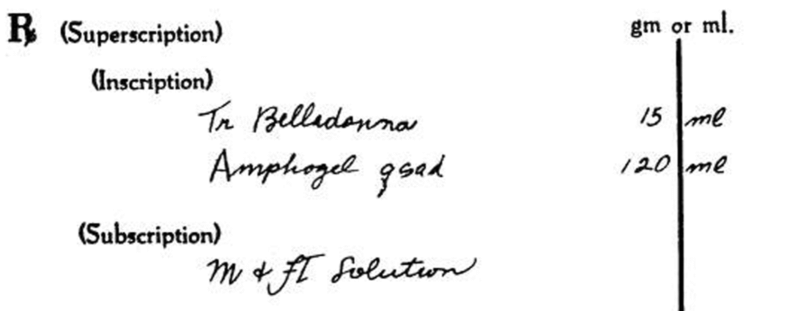 ℞ (Superscription) gm or ml.
(Inscription)
Tr Belladonna 15 ml
Amphogel qsad 120 ml
(Subscription)
M & Ft Solution